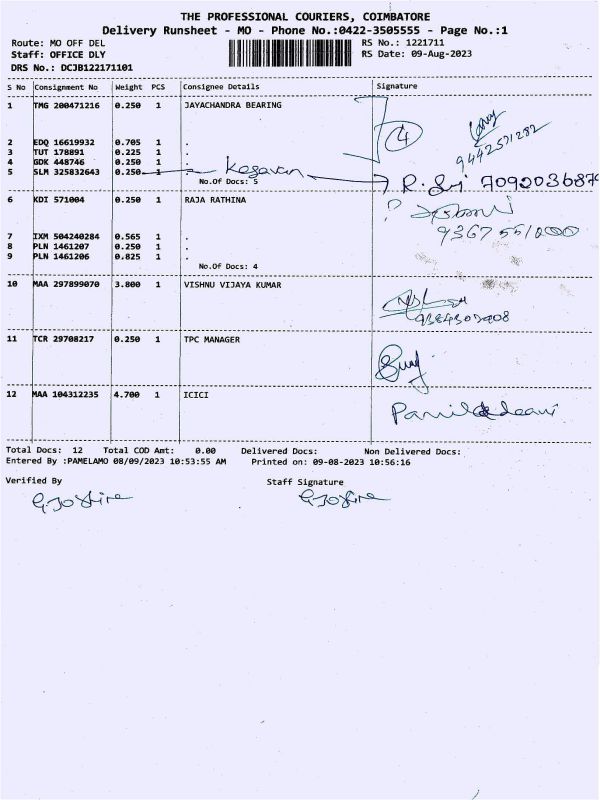 THE PROFESSIONAL COURIERS, COIMBATORE
Delivery Runsheet - MO - Phone No.:0422-3505555 - Page No.:1
Route: MO OFF DEL RS No.: 1221711
Staff: OFFICE DLY RS Date: 09-Aug-2023
DRS No.: DCJB122171101
S No Consignment No Weight PCS Consignee Details Signature
1 TMG 200471216 0.250 1 JAYACHANDRA BEARING
4
9442571282
2 EDQ 16619932 0.705 1 .
3 TUT 178891 0.225 1 .
4 GDK 448746 0.250 1 .
5 SLM 325832643 0.250 1 . Kesavan
No.Of Docs: 5
6 KDI 571004 0.250 1 RAJA RATHINA ?
7 IXM 504240284 0.565 1 .
8 PLN 1461207 0.250 1 .
9 PLN 1461206 0.825 1 .
No.Of Docs: 4
10 MAA 297899070 3.800 1 VISHNU VIJAYA KUMAR
11 TCR 29708217 0.250 1 TPC MANAGER
12 MAA 104312235 4.700 1 ICICI
Total Docs: 12 Total COD Amt: 0.00 Delivered Docs: Non Delivered Docs:
Entered By :PAMELAMO 08/09/2023 10:53:55 AM Printed on: 09-08-2023 10:56:16
Verified By Staff Signature